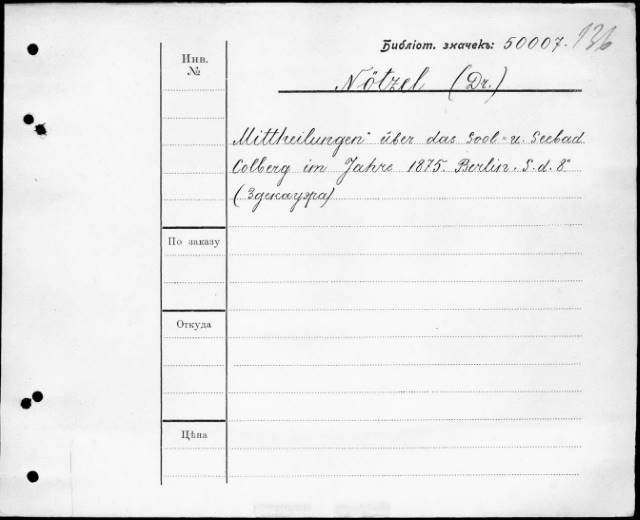 Библіот. значекъ: 50007. 136
Инв. №
Nötzel (Dr.)
Mittheilungen über das Sool- u. Seebad
Colberg im Jahre 1875. Berlin. S. d. 8°
(Здекауэра)
По заказу
Откуда
Цѣна